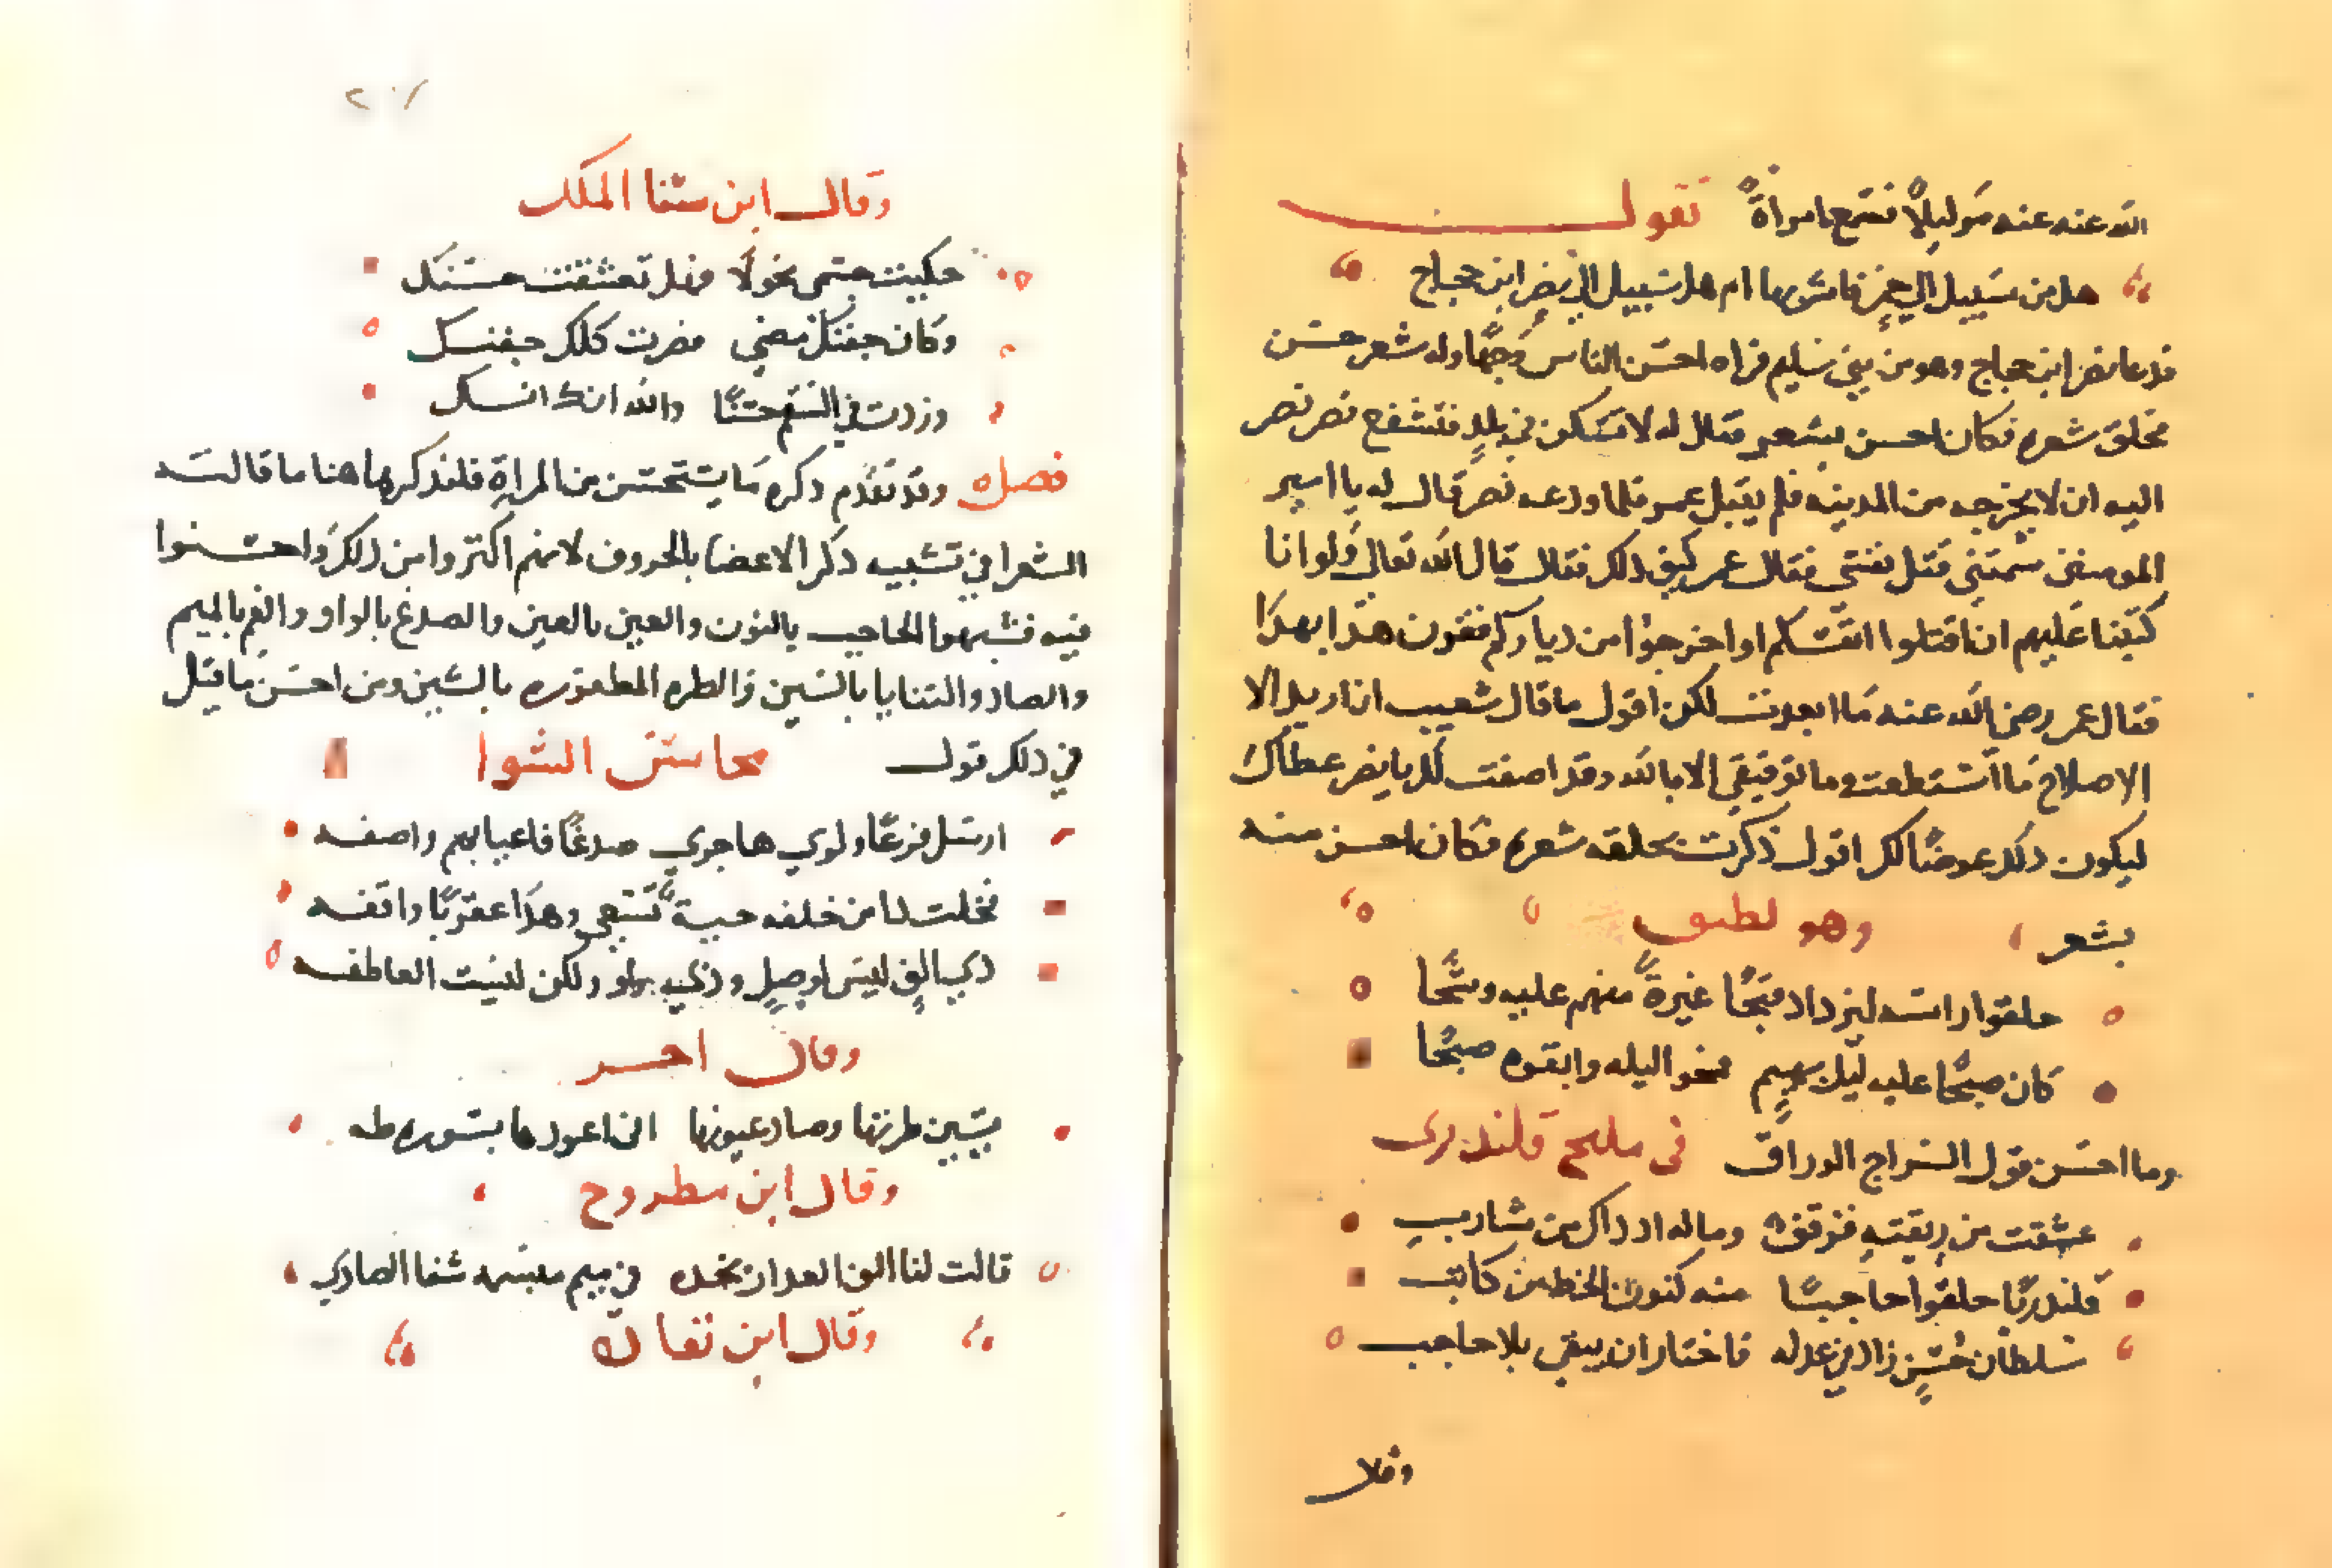 الله عنه عنه مر ليلاً فسمع امراةً تقول
هل من سبيل الي خمر فاشربها ام هل سبيل الي نصر ابن حجاج
فدعا نصر ابن حجاج وهو من بني سليم فراه احسن الناس وجهًا وله شعر حسن
فحلق شعره فكان احسن بشعر فقال له لا تسكن في بلدٍ فتشفع نصر نصر
اليه ان لا يخرجه من المدينه فلم يقبل عمر فلما ودعه نصر قال له يا امير
المومنين سمتني قتل نفسي فقال عمر كيف ذلك فقال قال الله تعالي ولو انا
كتبنا عليهم ان اقتلوا انفسكم او اخرجوا من دياركم فقرن هذا بهذا
فقال عمر رضي الله عنه ما ابعدت لكن اقول ما قال شعيب ان اريد الا
الاصلاح ما استطعت وما توفيقي الا بالله وقد اضفت لك يا نصر عطاك
ليكون ذلك عوضًا لك اقول ذكرت بحلقه شعره فكان احسن منه
بشعر وهو لطيف
حلقوا راسه ليزداد قبحًا غيرةً منهم عليه وشحا
كان صبحًا عليه ليل بهيم فمحو اليله وابقوه صبحًا
وما احسن قول السراج الوراق في مليح قلندري
عشقت من ريقته قرقفه وماله اذ ذاك من شارب
قلندريًا حلقوا حاجبًا منه كنون الخط من كاتب
سلطان حُسنٍ زاد في عدله فاختار ان يبقي بلا حاجب
وقال
٢٠٧
وقال ابن سنا الملك
حكيت جسمي نحولًا فهل تعشقت حسنك
وكان جفنك مضني فصرت كلك جفنك
وزدت في السقم حسنًا والله انك انك
فصل وقد تقدم ذكره ما يستحسن من المراة فلنذكر هاهنا ما قالته
الشعرا في تشبيه ذكر الاعضا بالحروف لانهم اكثروا من ذلك واحسنوا
فيه فشبهوا الحاجب بالنون والعين بالعين والصدغ بالواو والفم بالميم
والصاد والثنايا بالسين والطره المظفوره بالشين ومن احسن ما قيل
في ذلك قول محاسن الشوا
ارسل فرعًا ولوي هاجري صدغًا فاعيا بهم واصفه
فخلت ذا من خلفه حيةً تسعي وهذا عقربًا واقفه
ذي الف ليس لوصلٍ وذي واو ولكن ليست العاطفه
وقال اخر
بسين طرتها وصاد عيونها اني اعوذها بسوره طه
وقال ابن مطروح
قالت لنا الف العذار بخده في ميم مبسمه شفا الصادي
وقال ابن نفاده